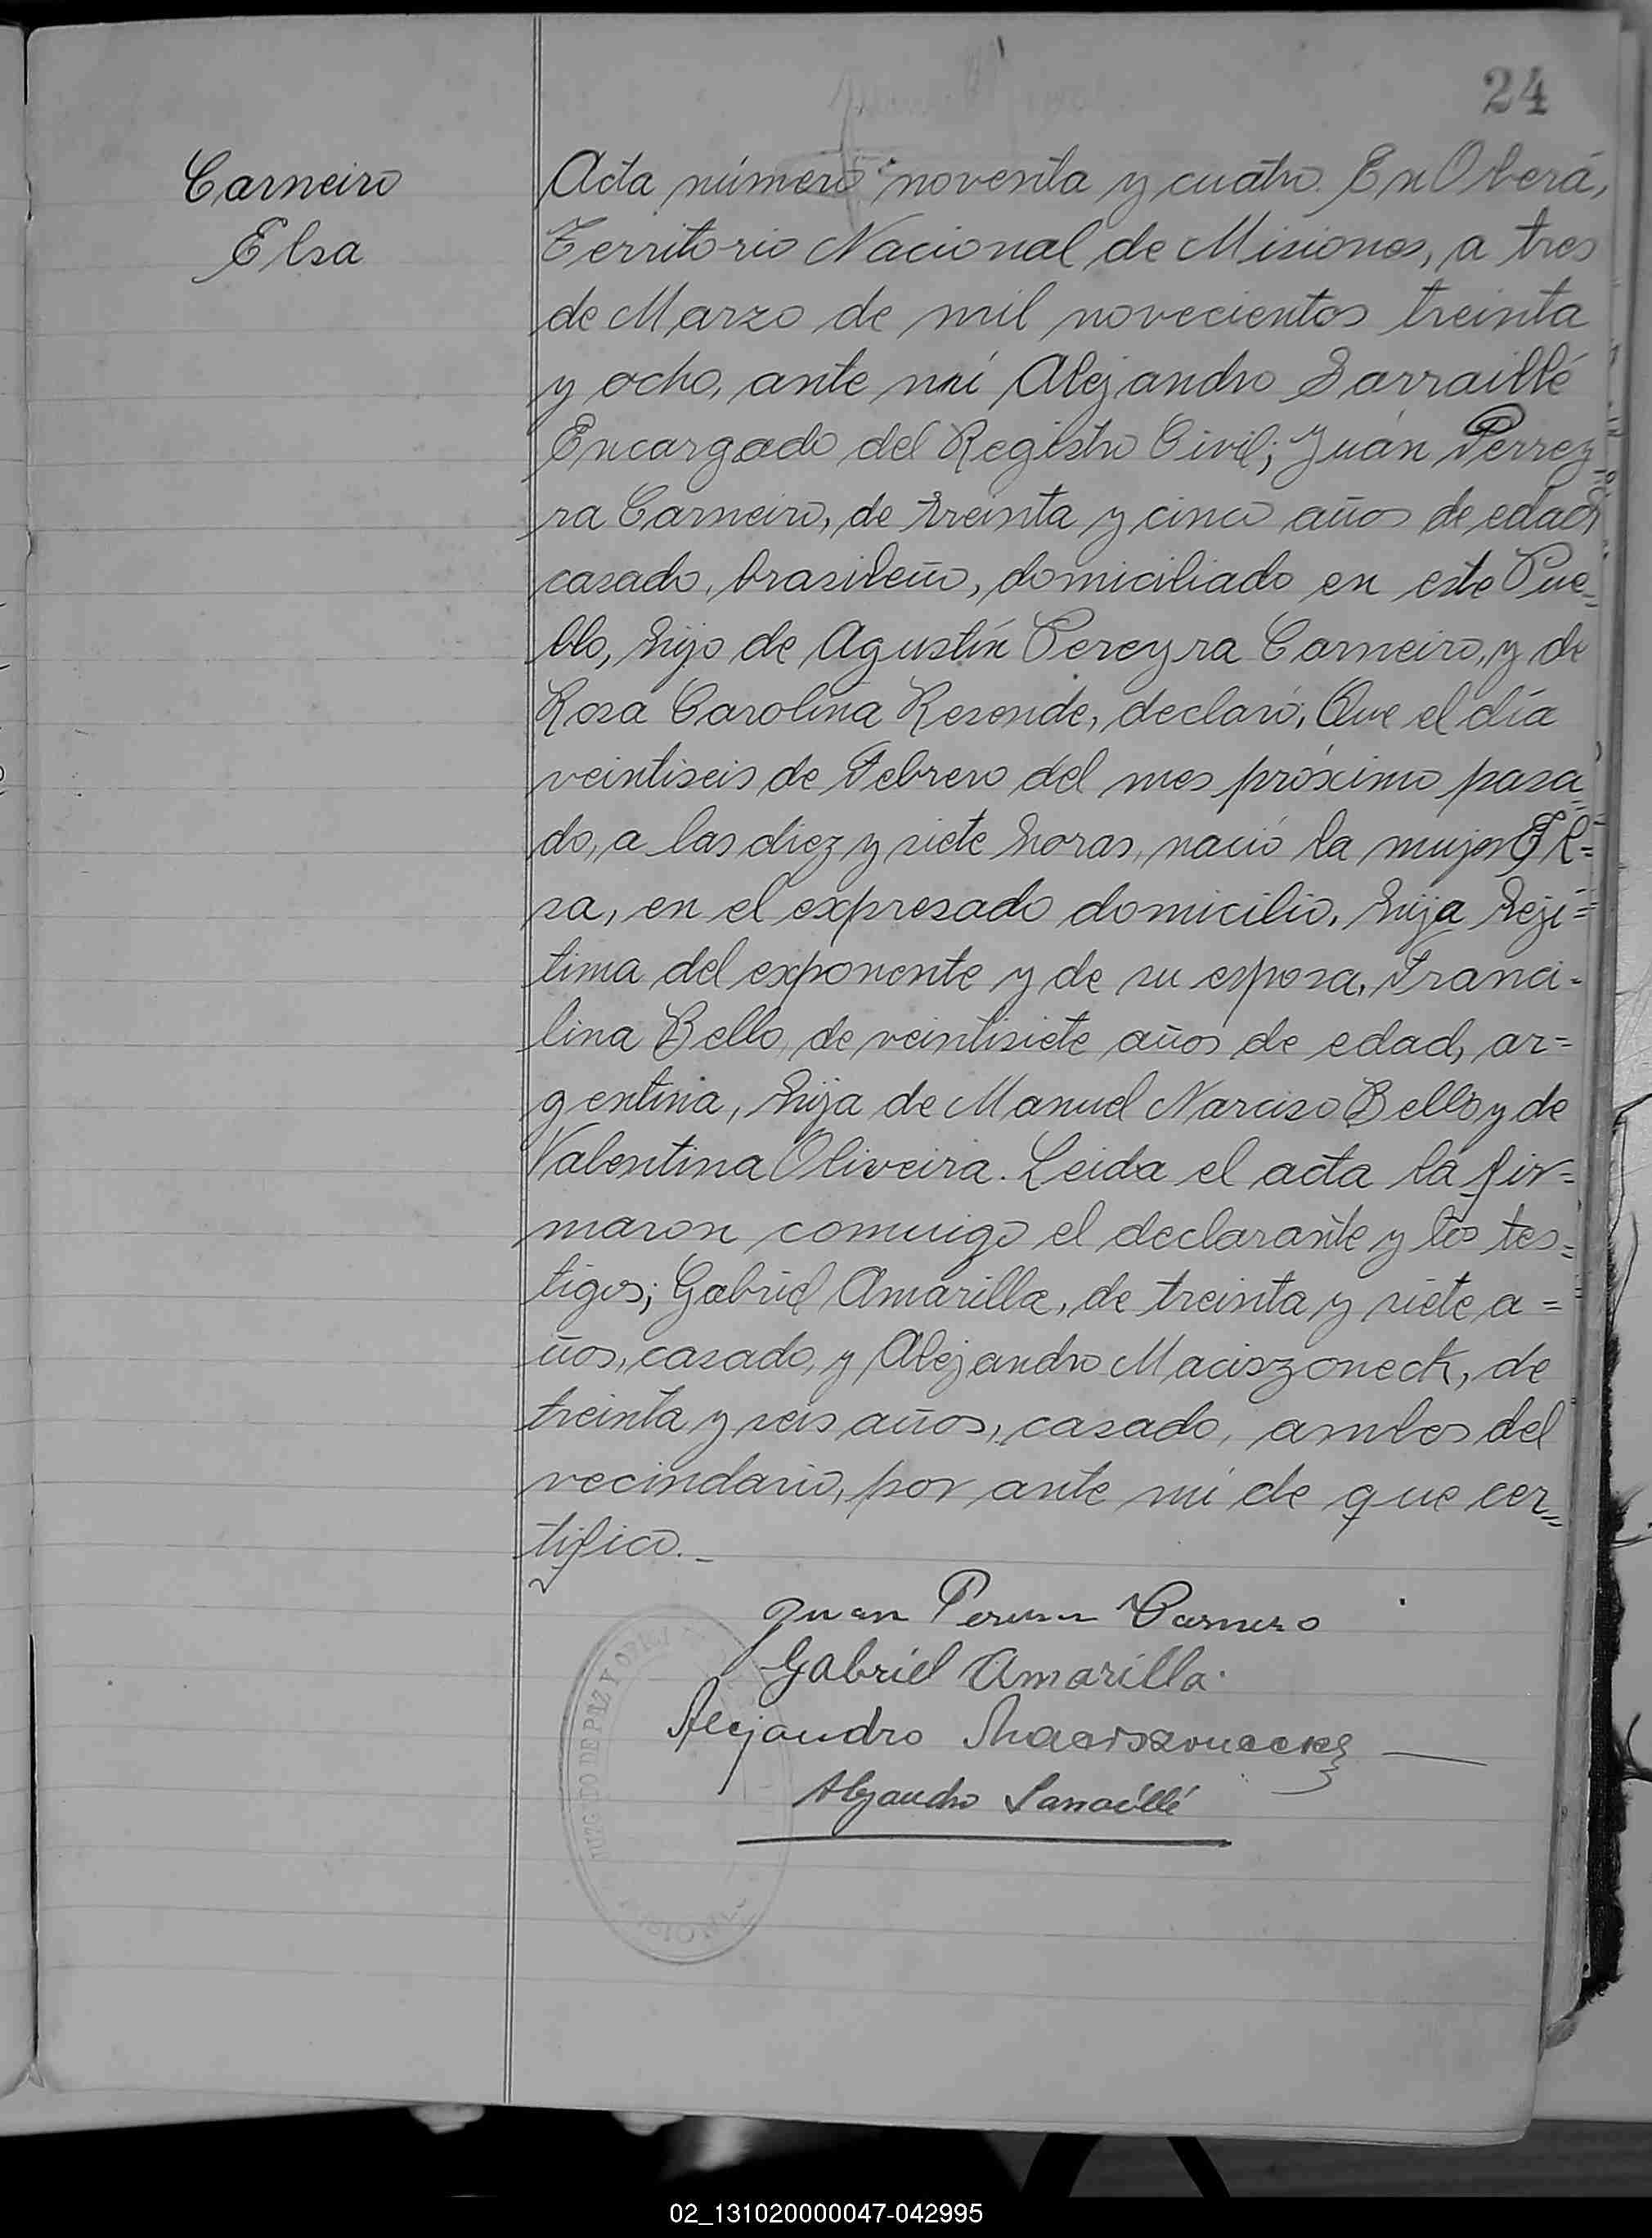 24
Carneiro
Elsa
Acta número noventa y cuatro. En Oberá,
Territorio Nacional de Misiones, a tres
de Marzo de mil novecientos treinta
y ocho, ante mí Alejandro Sarraillé
Encargado del Registro Civil; Juán Perrey
ra Carneiro, de treinta y cinco años de edad
casado, brasileño, domiciliado en este Pue=
blo, hijo de Agustín Pereyra Carneiro, y de
Rosa Carolina Resende, declaró; Que el día
veintiseis de Febrero del mes próximo pasa=
do, a las diez y siete horas, nació la mujer El=
sa, en el expresado domicilio, hija legi=
tima del exponente y de su esposa, Franci-
lina Bello, de veintisiete años de edad, ar=
gentina, hija de Manuel Narciso Bello y de
Valentina Oliveira. Leida el acta la fir=
maron conmigo el declarante y los tes=
tigos; Gabriel Amarilla, de treinta y siete a=
ños, casado, y Alejandro Maciszoneck, de
treinta y seis años, casado, ambos del
vecindario, por ante mi de que cer=
tifico._
Juan Carneiro
Gabriel Amarilla.
Alejandro
Alejandro Sarraillé
JUZGADO DE PAZ Y
02_131020000047-042995